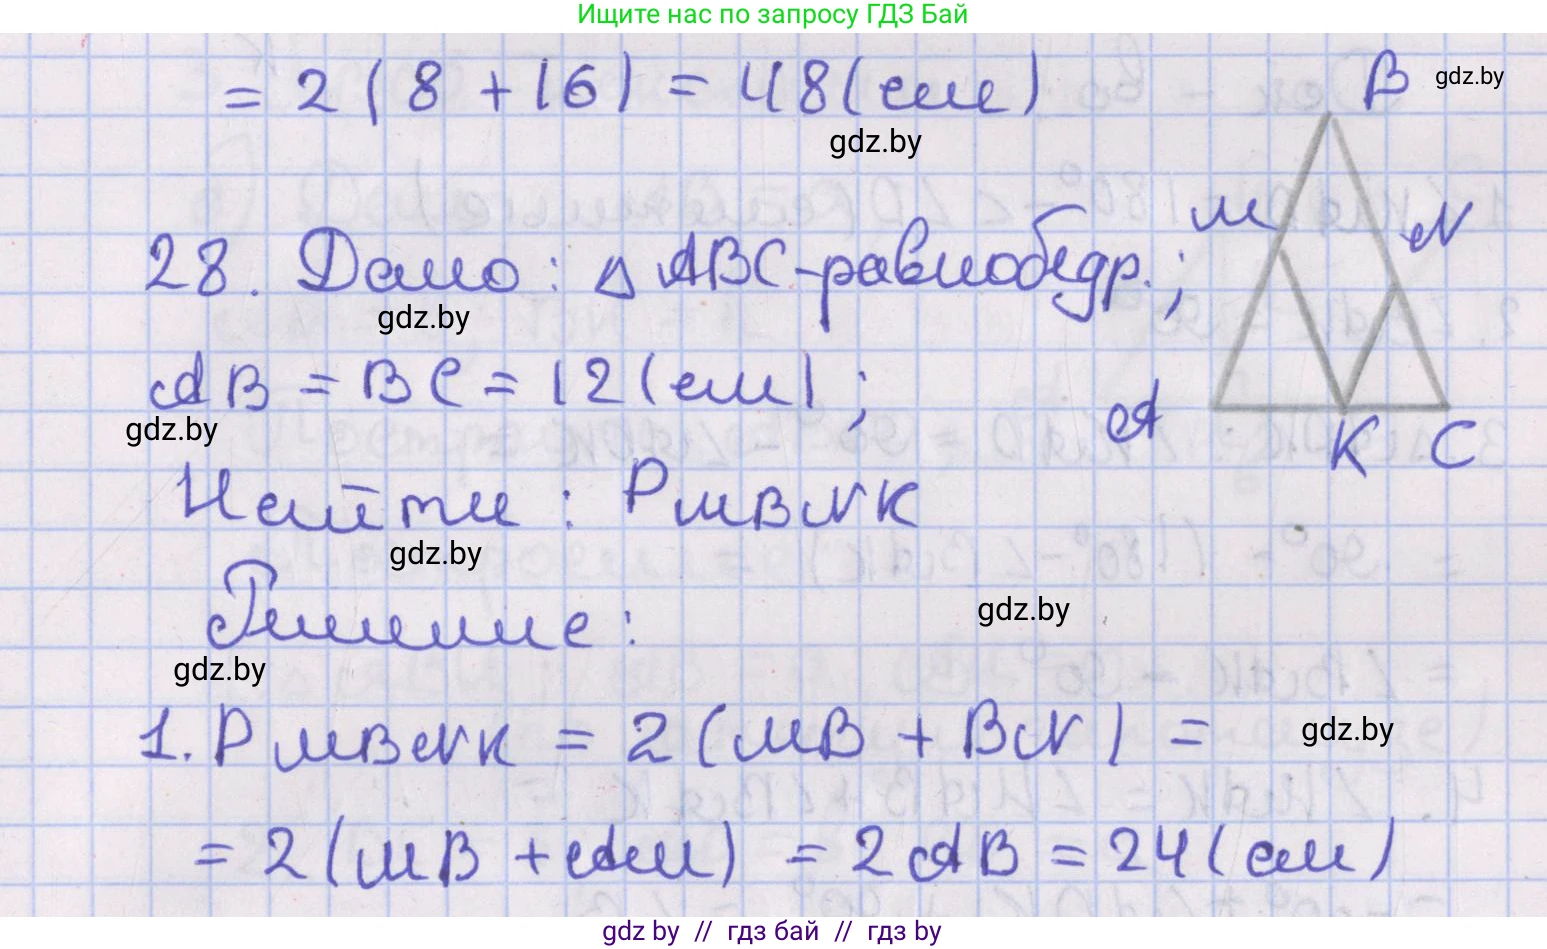 Ищите нас по запросу ГДЗ Бай
= 2(8 + 16) = 48(см)
B
gdz.by
gdz.by
28. Дано: △ ABC - равнобедр.;
M
N
gdz.by
AB = BC = 12(см);
A
K C
gdz.by
Найти: P MBNK
gdz.by
Решение:
gdz.by
gdz.by
1. P MBNK = 2(MB + BN) =
gdz.by
= 2(MB + AM) = 2AB = 24(см)
gdz by // гдз бай // гдз by